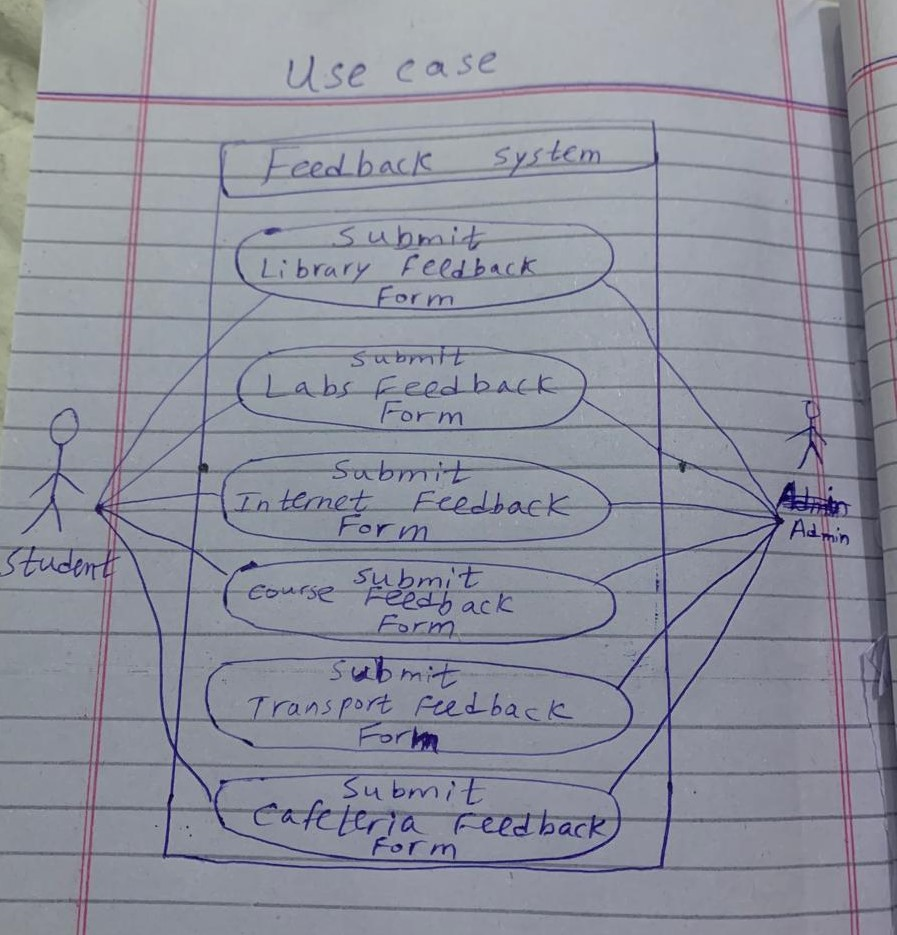 Use case
Feedback system
Submit
Library Feedback
Form
Submit
Labs Feedback
Form
Submit
Internet Feedback
Form
Submit
course Feedback
Form
Submit
Transport Feedback
Form
Submit
Cafeteria Feedback
Form
Student
Admin
Admin